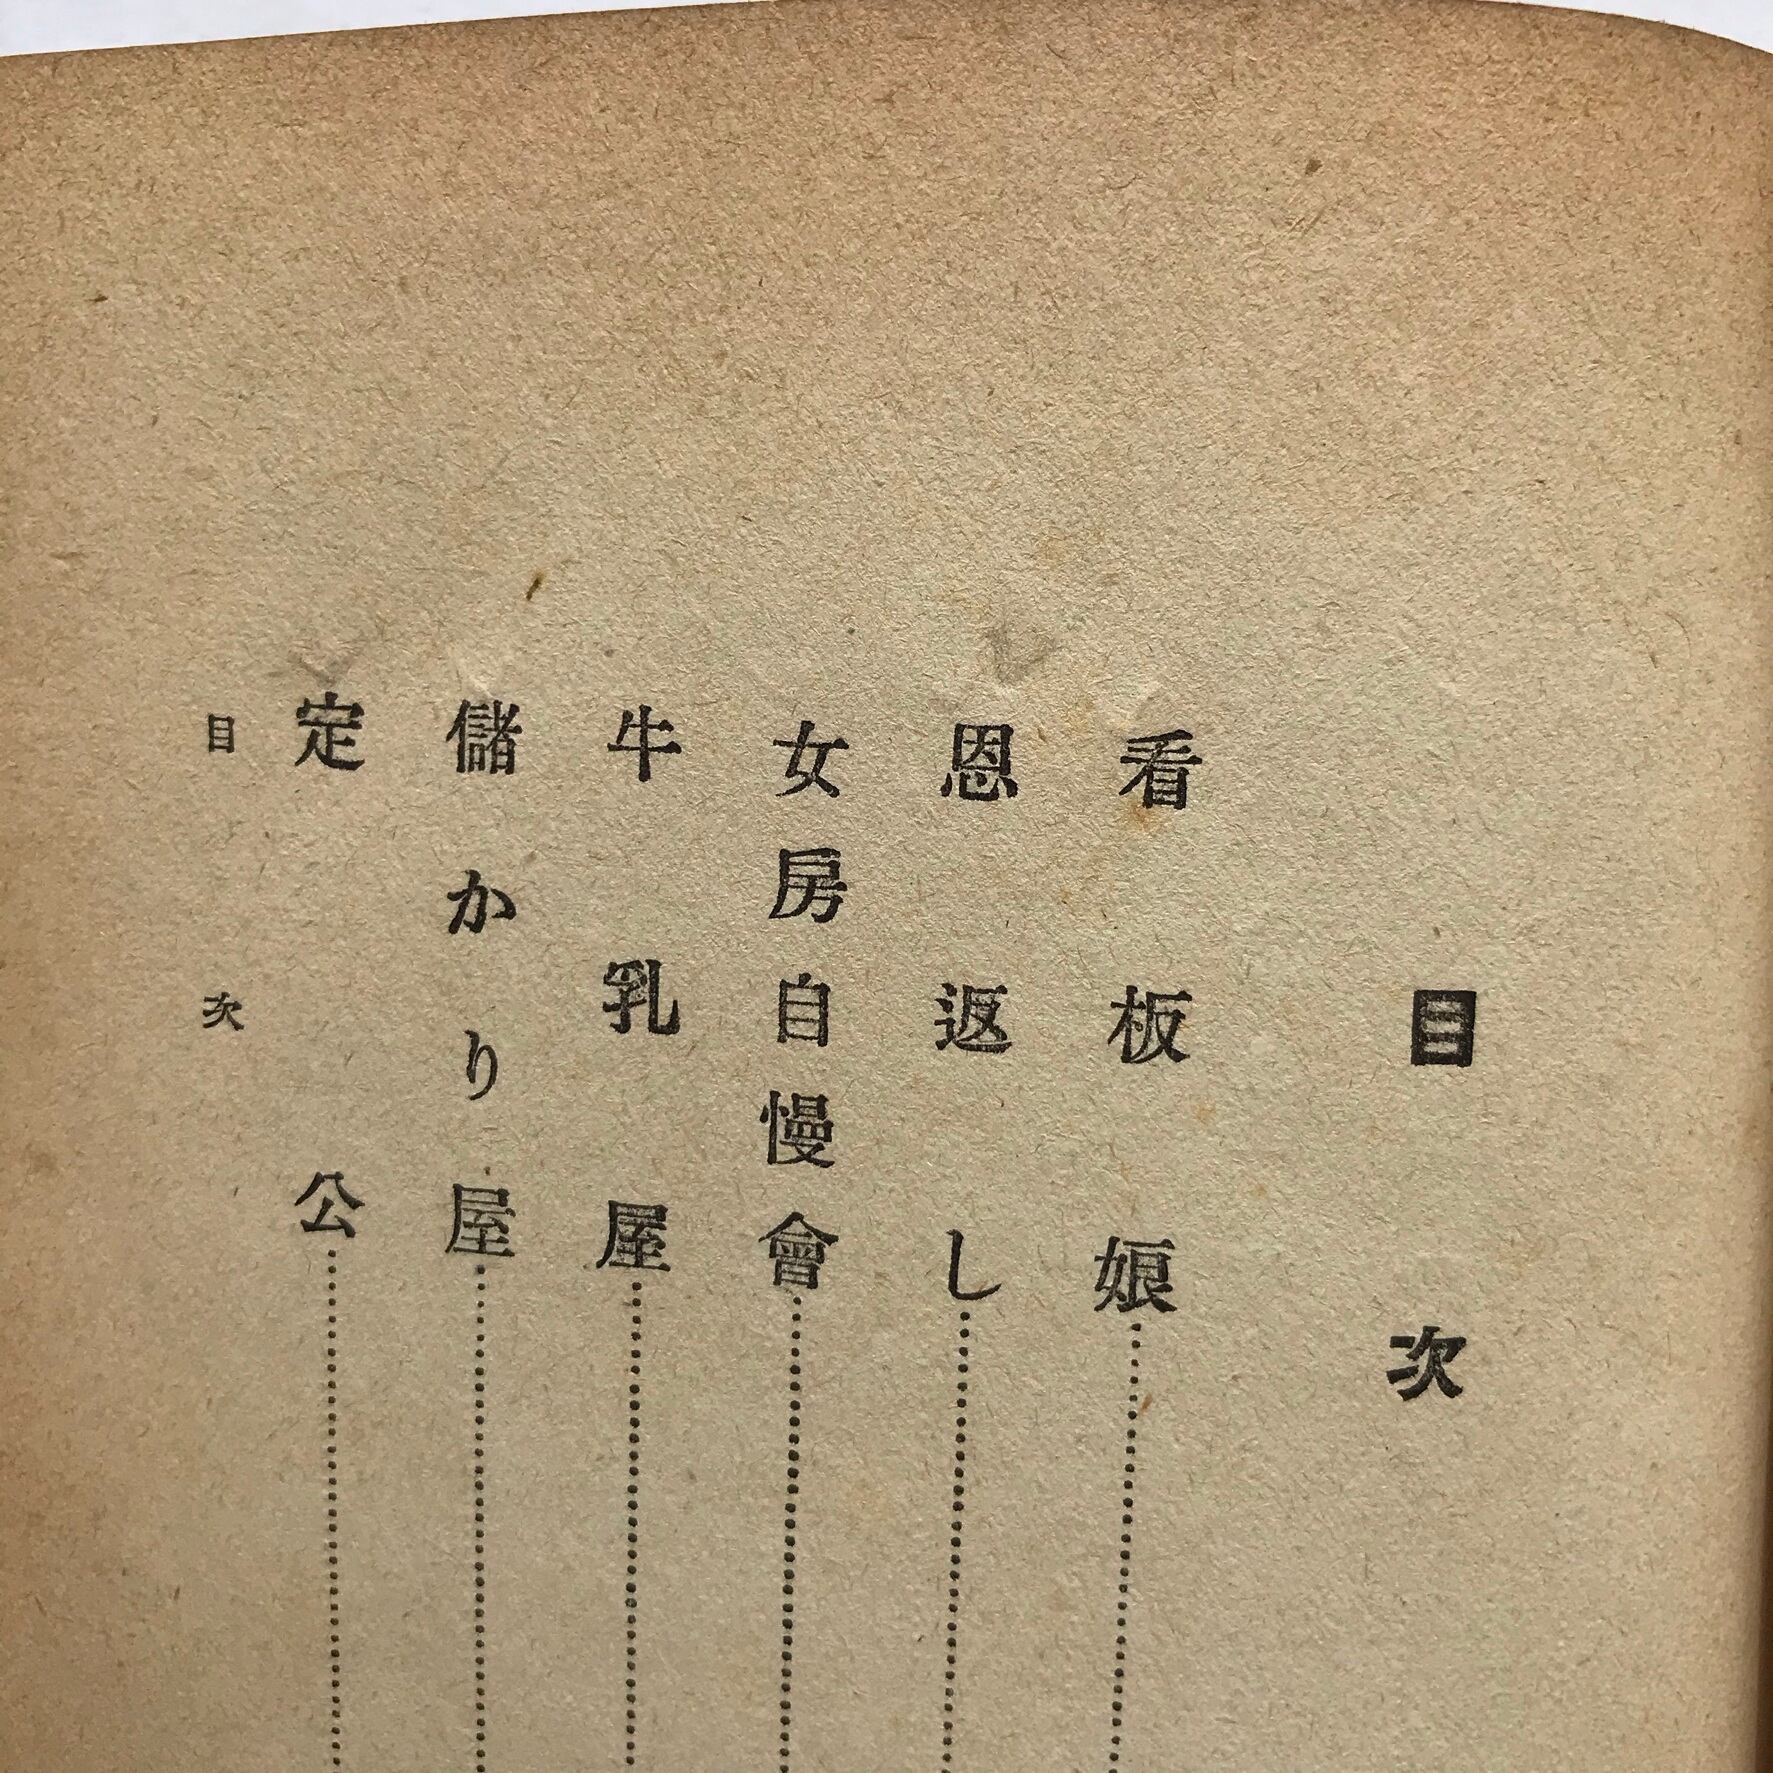 目次
看板娘
恩返し
女房自慢會
牛乳屋
儲かり屋
定公
目次